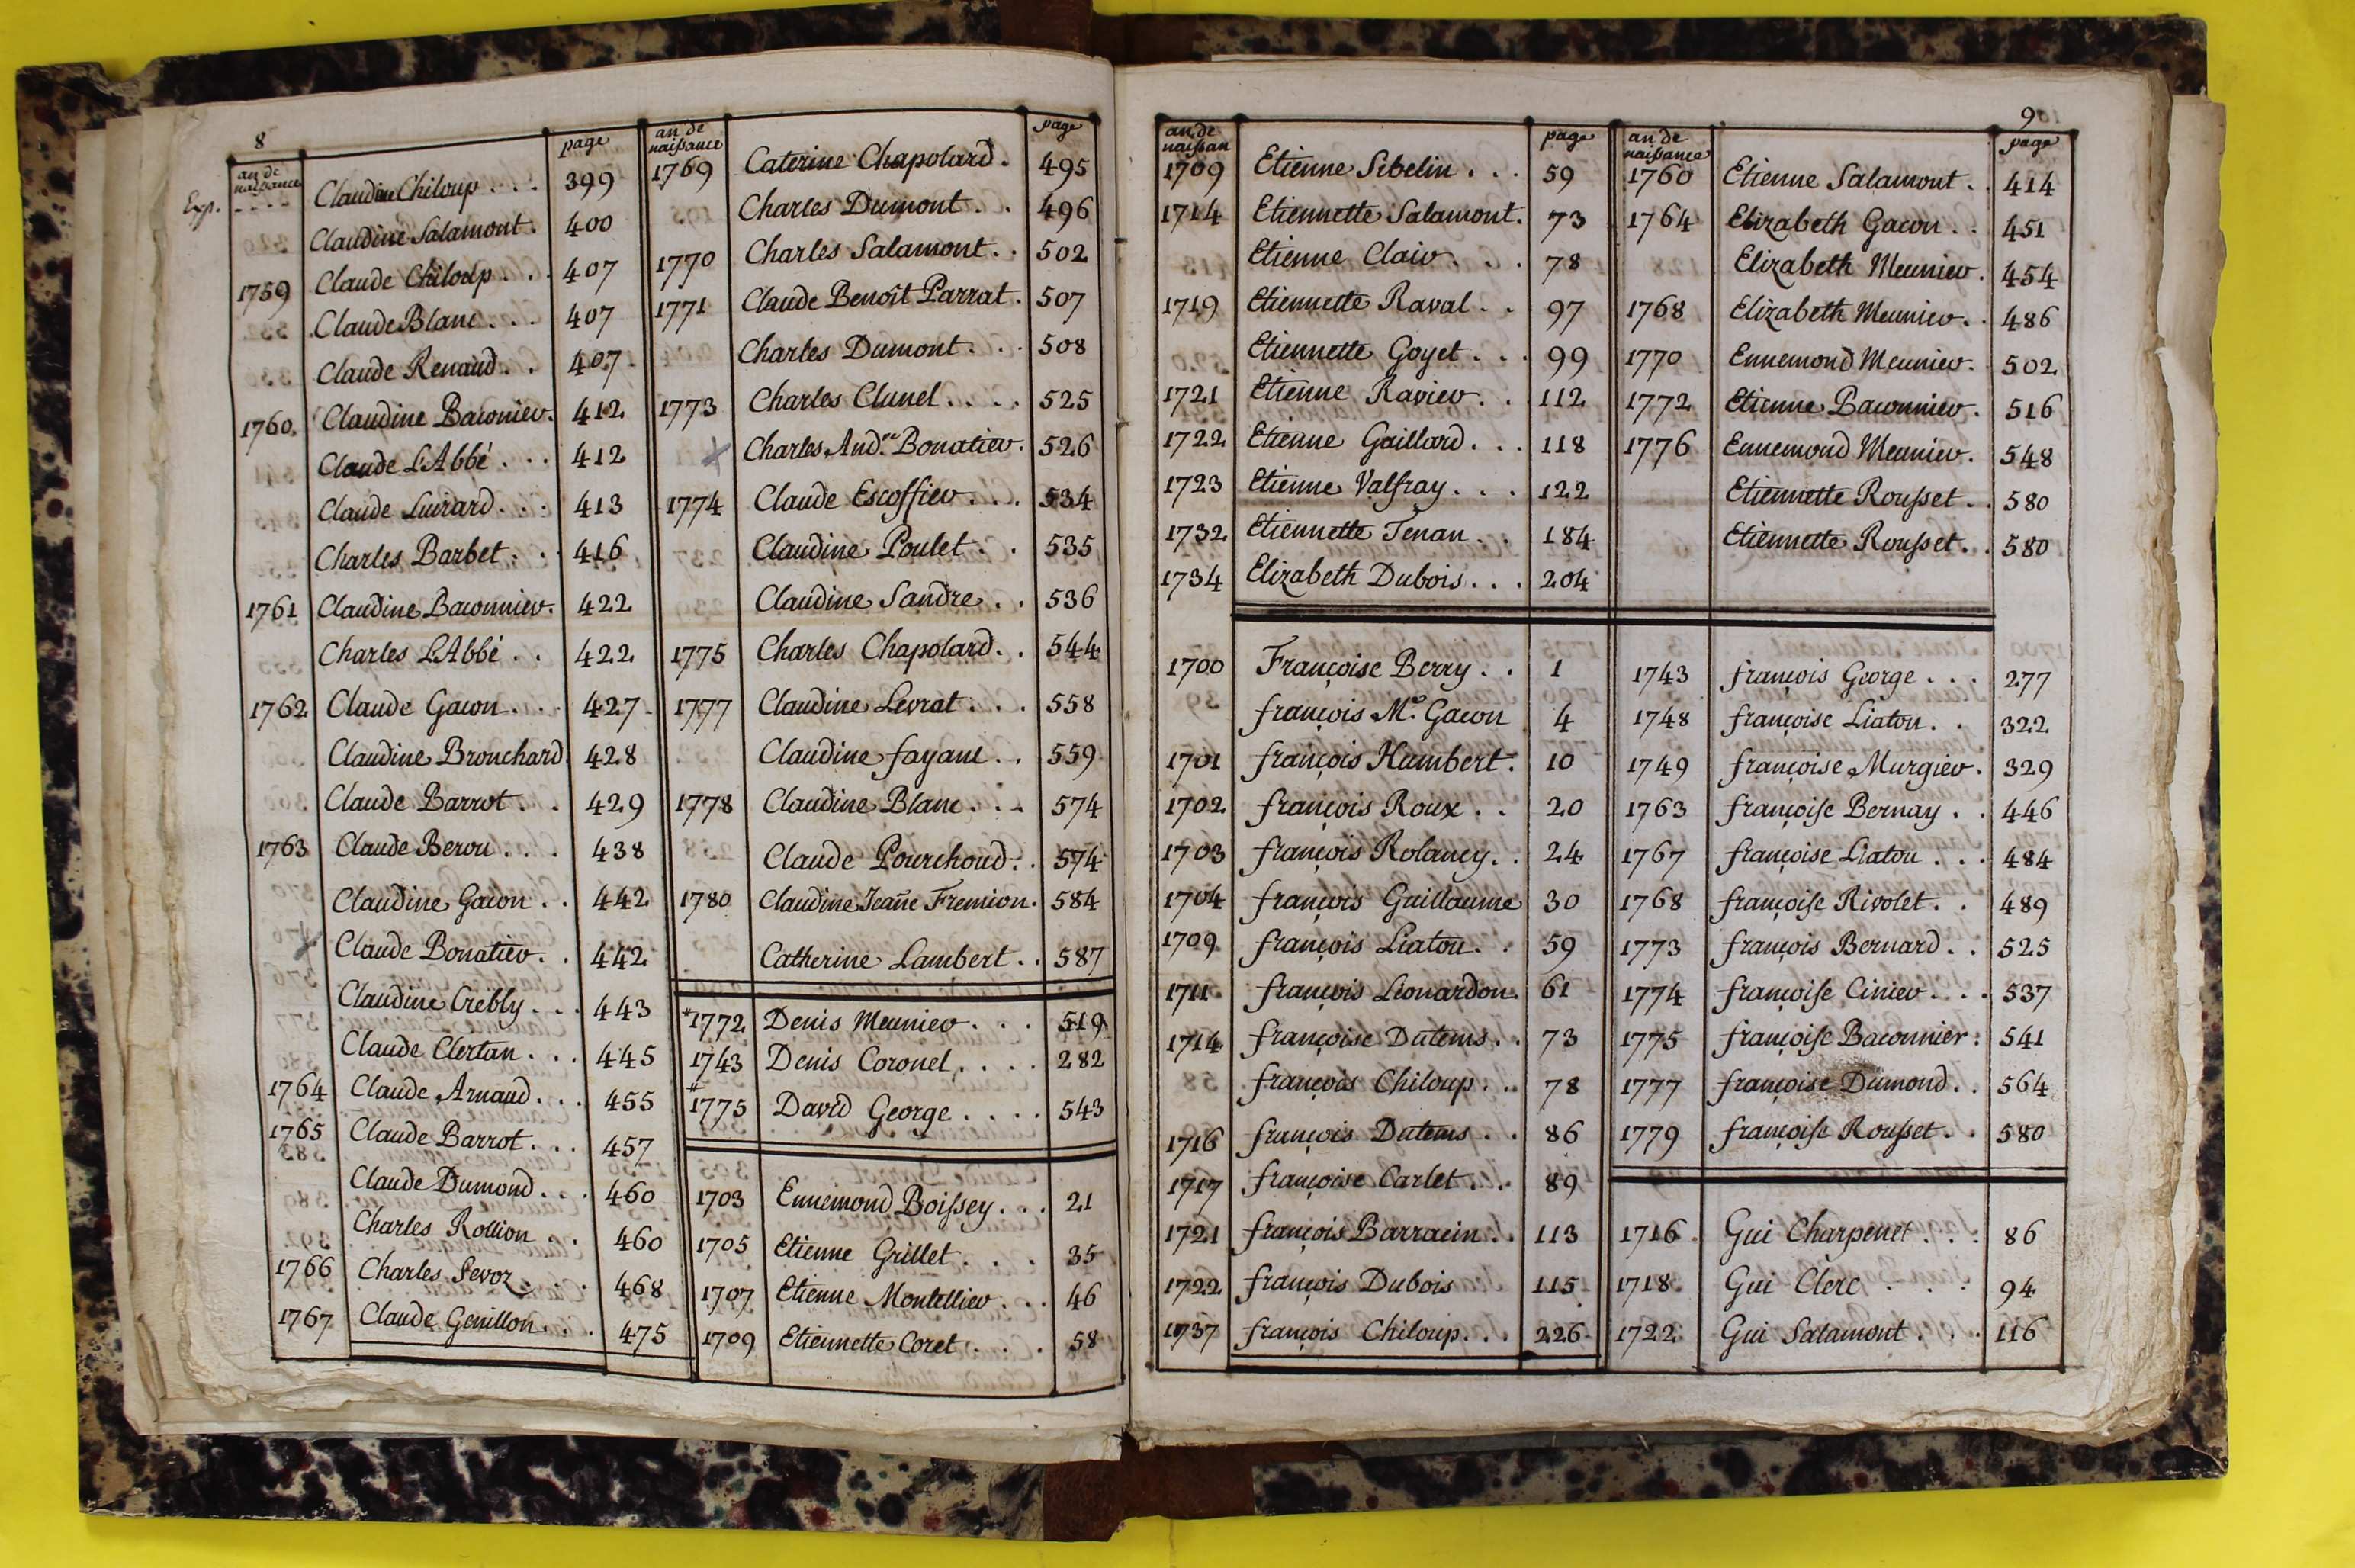 8
an de naissance page
Exp. - - - - Claudine Chiloup . . . . 399
Claudine Salamont . 400
1759 Claude Chiloup . . . 407
Claude Blanc . . . 407
Claude Renaud . . 407
1760. Claudine Baconnier. 412
Claude L'Abbé . . . 412
Claude Luirard . . . 413
Charles Barbet . . 416
1761 Claudine Baconnier. 422
Charles L'Abbé . . 422
1762 Claude Gacon . . . 427
Claudine Bronchard 428
Claude Barrot . . 429
1763 Claude Berou . . . 438
Claudine Gacon . . 442
x Claude Bonatier . . 442
Claudine Crebly . . . 443
Claude Clertan . . . 445
1764 Claude Arnaud . . . 455
1765 Claude Barrot . . . 457
Claude Dumond . . . 460
Charles Rollion . . 460
1766 Charles Sevoz . . . 468
1767 Claude Genillon . . . 475
an de naissance page
1769 Caterine Chapolard . 495
Charles Dumont . . 496
1770 Charles Salamont . . 502
1771 Claude Benoît Parrat . 507
Charles Dumont . . . 508
1773 Charles Clunel . . . . 525
x Charles And.re Bonatier . 526
1774 Claude Escoffier . . . 534
Claudine Poulet . . 535
Claudine Sandre . . 536
1775 Charles Chapolard . . 544
1777 Claudine Levrat . . . 558
Claudine fayant . . 559
1778 Claudine Blanc . . . 574
Claude Pourchoud . . 574
1780 Claudine Jeañe Fremion . 584
Catherine Lambert . . 587
*1772 Denis Meunier . . . 519
1743 Denis Coronel . . . . 282
*1775 David George . . . . 543
1703 Ennemond Boissey . . . 21
1705 Etienne Grillet . . . 35
1707 Etienne Montellier . . . 46
1709 Etiennette Coret . . . 58
9
an de naissan page
1709 Etienne Sibelin . . . 59
1714 Etiennette Salamont. 73
Etienne Clair . . . 78
1719 Etiennette Raval . . 97
Etiennette Goyet . . . 99
1721 Etienne Ravier . . 112
1722 Etienne Gaillard . . . 118
1723 Etienne Valfray . . . 122
1732 Etiennette Tenan . . 184
1734 Elizabeth Dubois . . . 204
1700 Françoise Berry . . 1
françois M.e Gacon 4
1701 françois Humbert . 10
1702 françois Roux . . 20
1703 françois Rolancy . . 24
1704 françois Guillaume 30
1709 françois Liatou . . 59
1711 françois Leonardon . 61
1714 françoise Dutems . . 73
françois Chiloup . . 78
1716 françois Dutems . . 86
1717 françoise Carlet . . 89
1721 françois Barracin . . 113
1722 françois Dubois 115
1737 françois Chiloup . . . 226
an de naissance page
1760 Etienne Salamont . 414
1764 Elizabeth Gacon . . 451
Elizabeth Meunier . 454
1768 Elizabeth Meunier . . 486
1770 Ennemond Meunier . 502
1772 Etienne Baconnier . 516
1776 Ennemond Meunier . 548
Etiennette Rousset . . 580
Etiennette Rousset . . 580
1743 françois George . . . 277
1748 françoise Liatou . . 322
1749 françoise Murgier . 329
1763 françoise Bernay . . 446
1767 françoise Liatou . . . 484
1768 françoise Rivolet . . 489
1773 françois Bernard . . 525
1774 françoise Cinier . . . 537
1775 françoise Baconnier . 541
1777 françoise Dumond . . 564
1779 françoise Rousset . . 580
1716 Gui Charpenet . . . 86
1718 Gui Clerc . . . 94
1722 Gui Salamont . . . 116